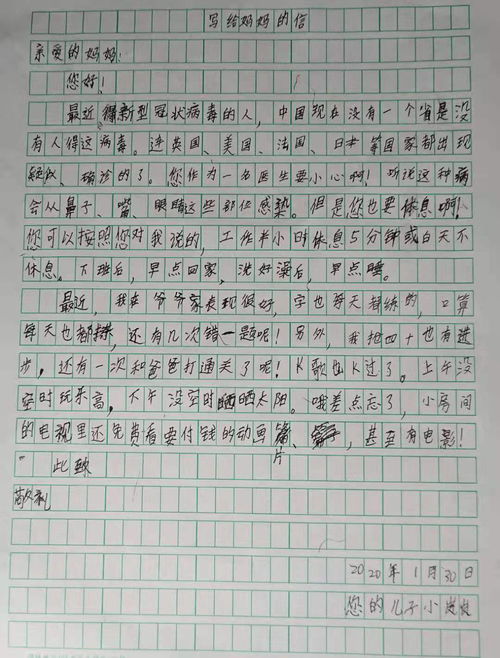 写给妈妈的信
亲爱的妈妈：
您好！
最近得新型冠状病毒的人，中国现在没有一个省是没
有人得这病毒。连英国、美国、法国、日本等国家都出现
疑似、确诊的了。您作为一名医生要小心啊！听说这种病
会从鼻子、嘴、眼睛这些部位感染。但是您也要休息啊！
您可以按照您对我说的，工作半小时休息5分钟或白天不
休息。下班后，早点回家，洗好澡后，早点睡。
最近，我在爷爷家表现很好，字也每天都练的，口算
每天也都，还有几次错一题呢！另外，我拍四十也有进
步，还有一次和爸爸打通关了呢！K歌也K过了。上午没
空时玩乐高，下午没空时晒晒太阳。哦差点忘了，小房间
的电视里还免费看要付钱的动画片、，甚至有电影！
此致
敬礼
2020年1月30日
您的儿子小